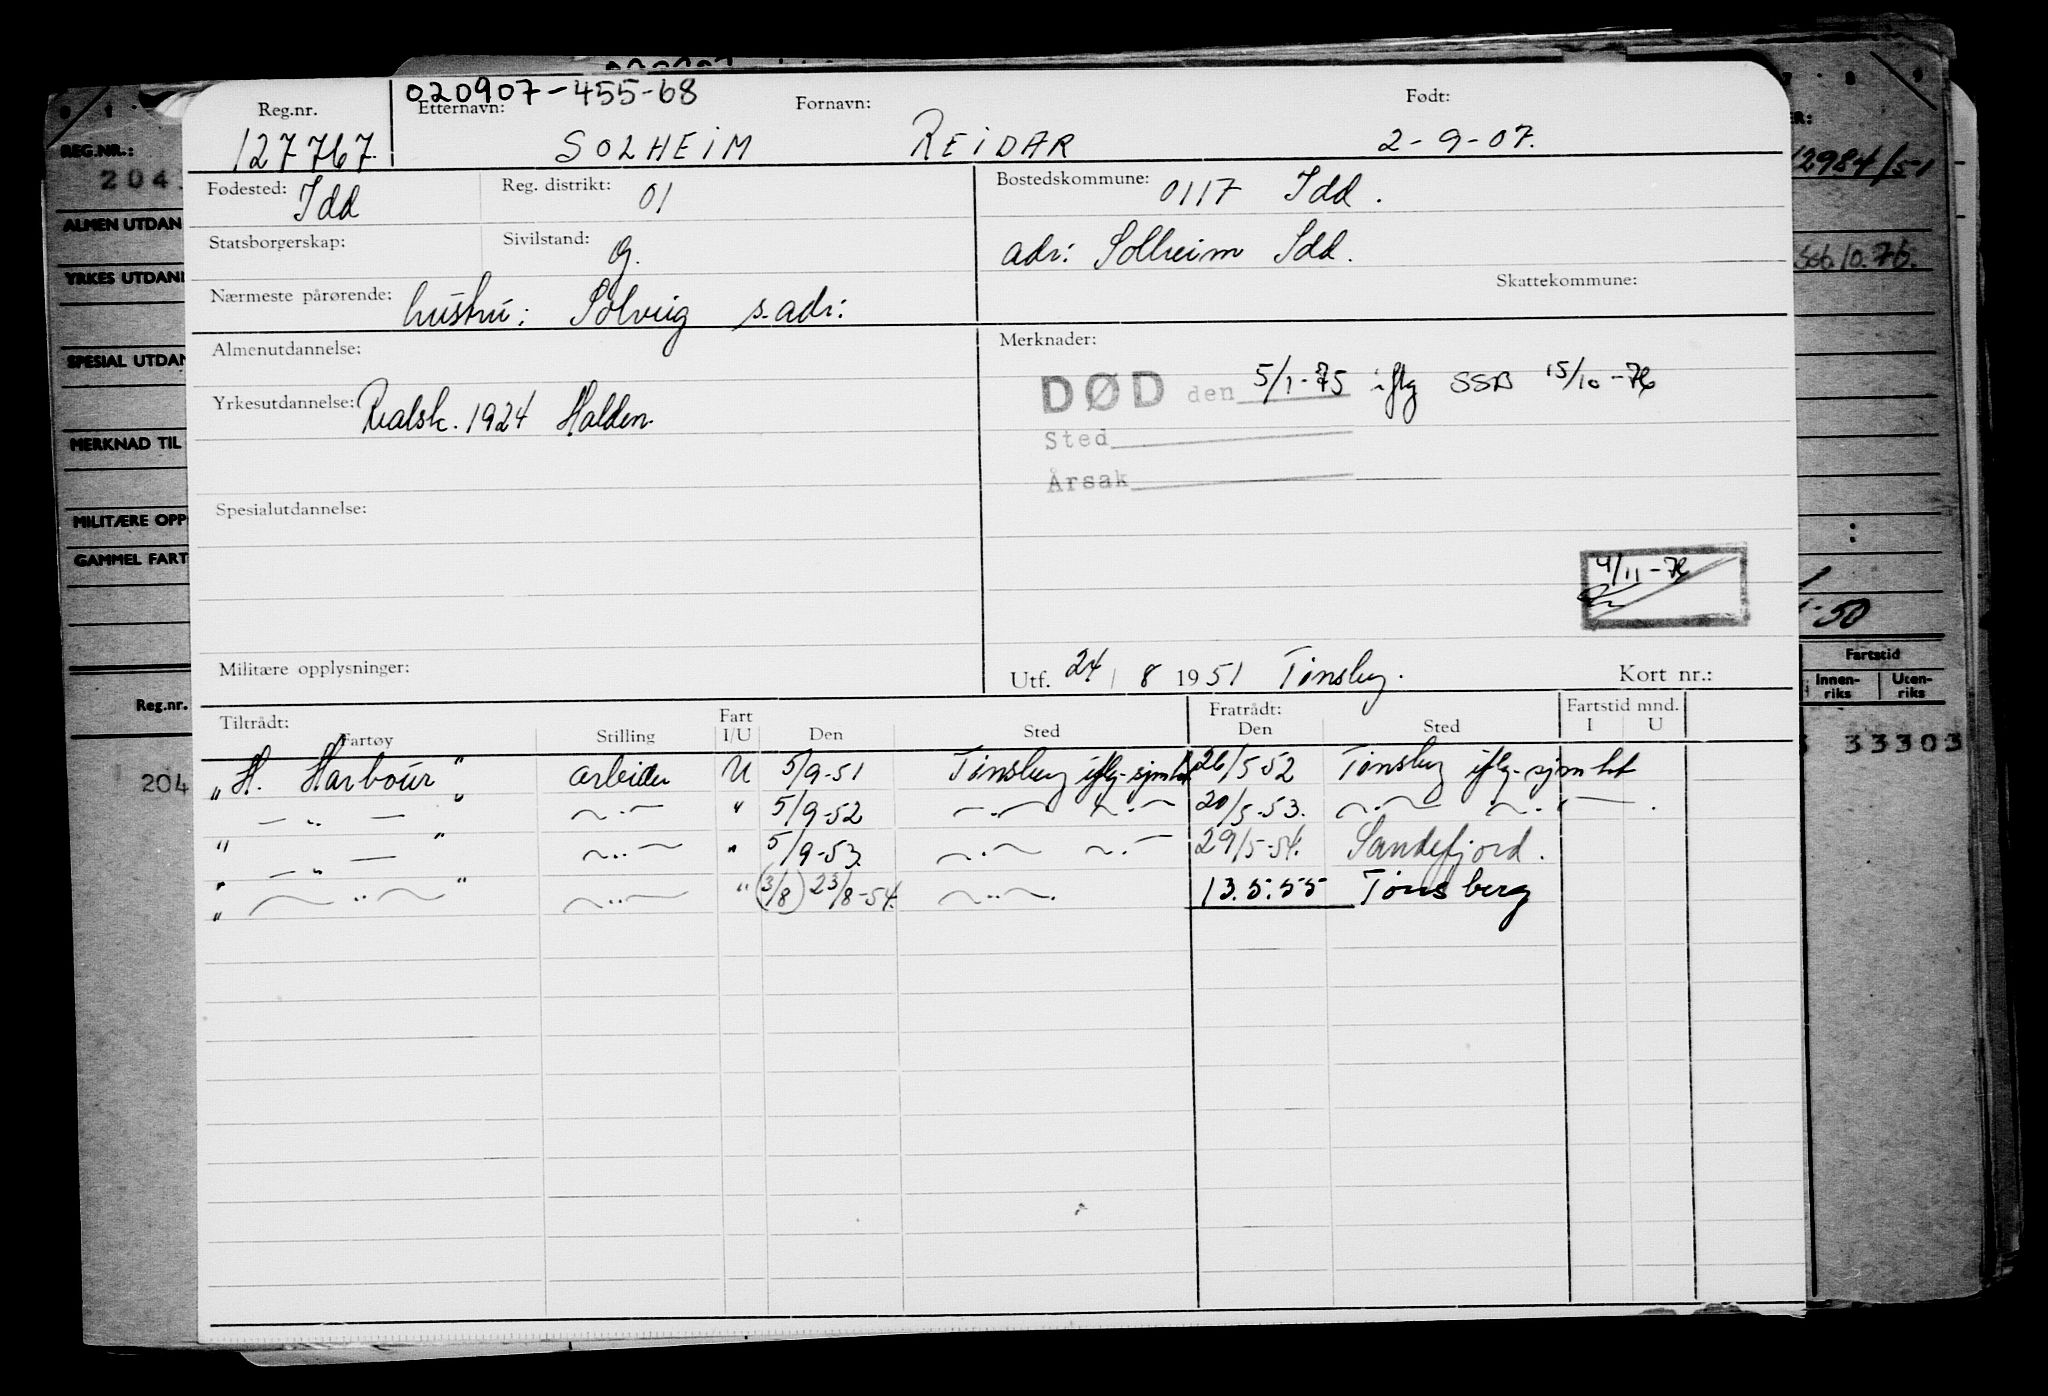 020907-455-68
Reg.nr. Etternavn: Fornavn: Født:
127767. SOLHEIM REIDAR 2-9-07.
Fødested: Idd Reg. distrikt: 01 Bostedskommune: 0117 Idd.
Statsborgerskap: Sivilstand: g. adr: Solheim Idd.
Skattekommune:
Nærmeste pårørende: hustru: Solveig s. adr:
Almenutdannelse: Merknader:
DØD den 5/1-75 iflg SSB 15/10-76
Yrkesutdannelse: Realsk. 1924 Halden.
Sted
Årsak
Spesialutdannelse:
4/11-76
Militære opplysninger: Utf. 24/8 1951 Tønsberg. Kort nr.:
Tiltrådt: Fratrådt: Fartstid mnd.
Fartøy Stilling Fart I/U Den Sted Den Sted I U
"H. Harbour" arbeider U 5/9-51 Tønsberg iflg. sjm 26/5-52 Tønsberg iflg. sjm
— " — —..— " 5/9-52 —.— —.— 20/5-53. —.— —.—
" — " — " —..— " 5/9-53. —.— —.— 29/5-54. Sandefjord.
" — .. — " —..— " (3/8) 23/8-54. —..—. 13.5.55 Tønsberg
REG.NR.:
204
ALMEN UTDAN
YRKES UTDAN
SPESIAL UTDAN
MERKNAD TIL
MILITÆRE OPP
GAMMEL FART
Reg.nr.
204
12984/51
10.76.
-50
Fartstid
Innen-riks Uten-riks
33303